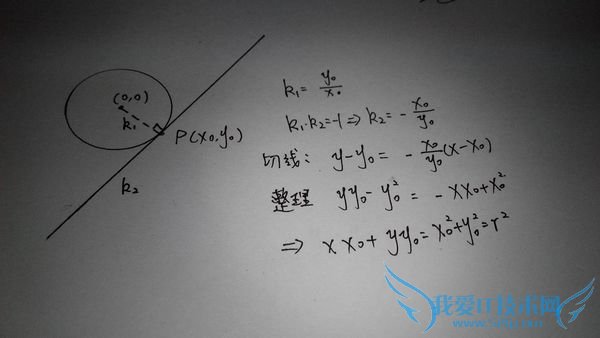 (0,0)
k₁
P(x₀,y₀)
k₂
k₁=y₀/x₀
k₁·k₂=-1⇒k₂=-x₀/y₀
切线: y-y₀=-x₀/y₀(x-x₀)
整理 yy₀-y₀²=-xx₀+x₀²
⇒ xx₀+yy₀=x₀²+y₀²=r²
我爱IT技术网